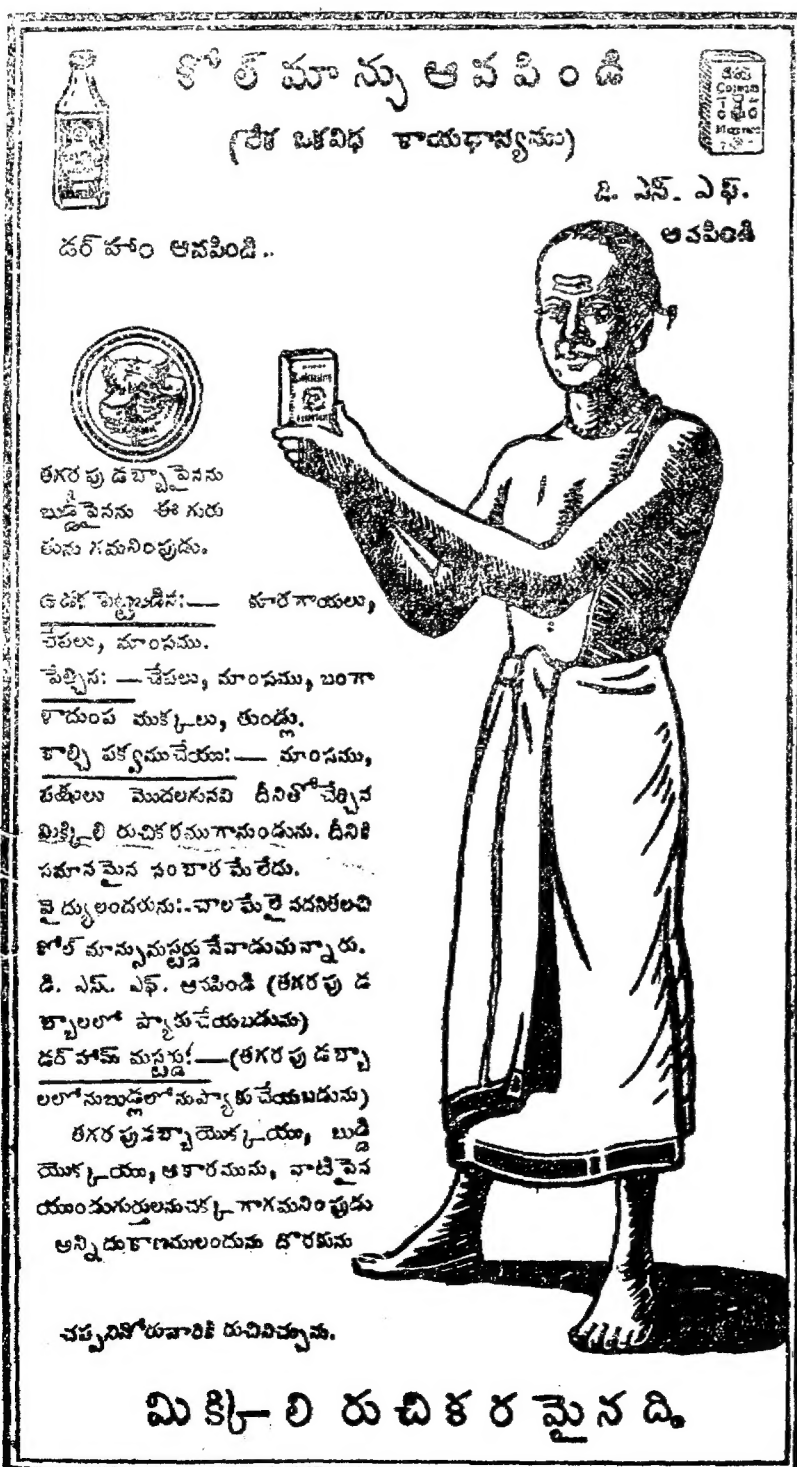 కోల్ మాన్సు ఆవపిండి
(లేక ఒకవిధ శాయధాన్యము)
డి. ఎస్. ఎఫ్.
ఆవపిండి
డర్ హాం ఆవపిండి..
తగరపు డబ్బాపైనను
బుడ్డిపైనను ఈ గురు
తును గమనింపుడు.
ఉడక పెట్టబడిన:— కూరగాయలు,
చేపలు, మాంసము.
పేల్చిన: —చేపలు, మాంసము, బంగా
ళాదుంప ముక్కలు, తుండ్లు.
కాల్చి పక్వముచేయు:— మాంసము,
పశులు మొదలగునవి దీనితోచేర్చిన
మిక్కిలి రుచికరముగానుండును. దీనికి
సమానమైన సంబారమేలేదు.
వైద్యులందరును:-చాలమేలైనదని
కోల్ మాన్సుమస్టర్డు నేవాడుమన్నారు.
డి. ఎస్. ఎఫ్. ఆవపిండి (తగరపు డ
బ్బాలలో ప్యాకుచేయబడును)
డర్ హామ్ మస్టర్డు:—(తగరపు డబ్బా
లలోనుబుడ్లలోనుప్యాకుచేయబడును)
తగరపుడబ్బాయొక్కయు, బుడ్డి
యొక్కయు, ఆకారమును, వాటిపైన
యుండుగుర్తులనుచక్కగాగమనింపుడు
అన్నిదుకాణములందును దొరకును
చప్పనినోరువారికి రుచినిచ్చును.
మిక్కిలి రుచికరమైనది.